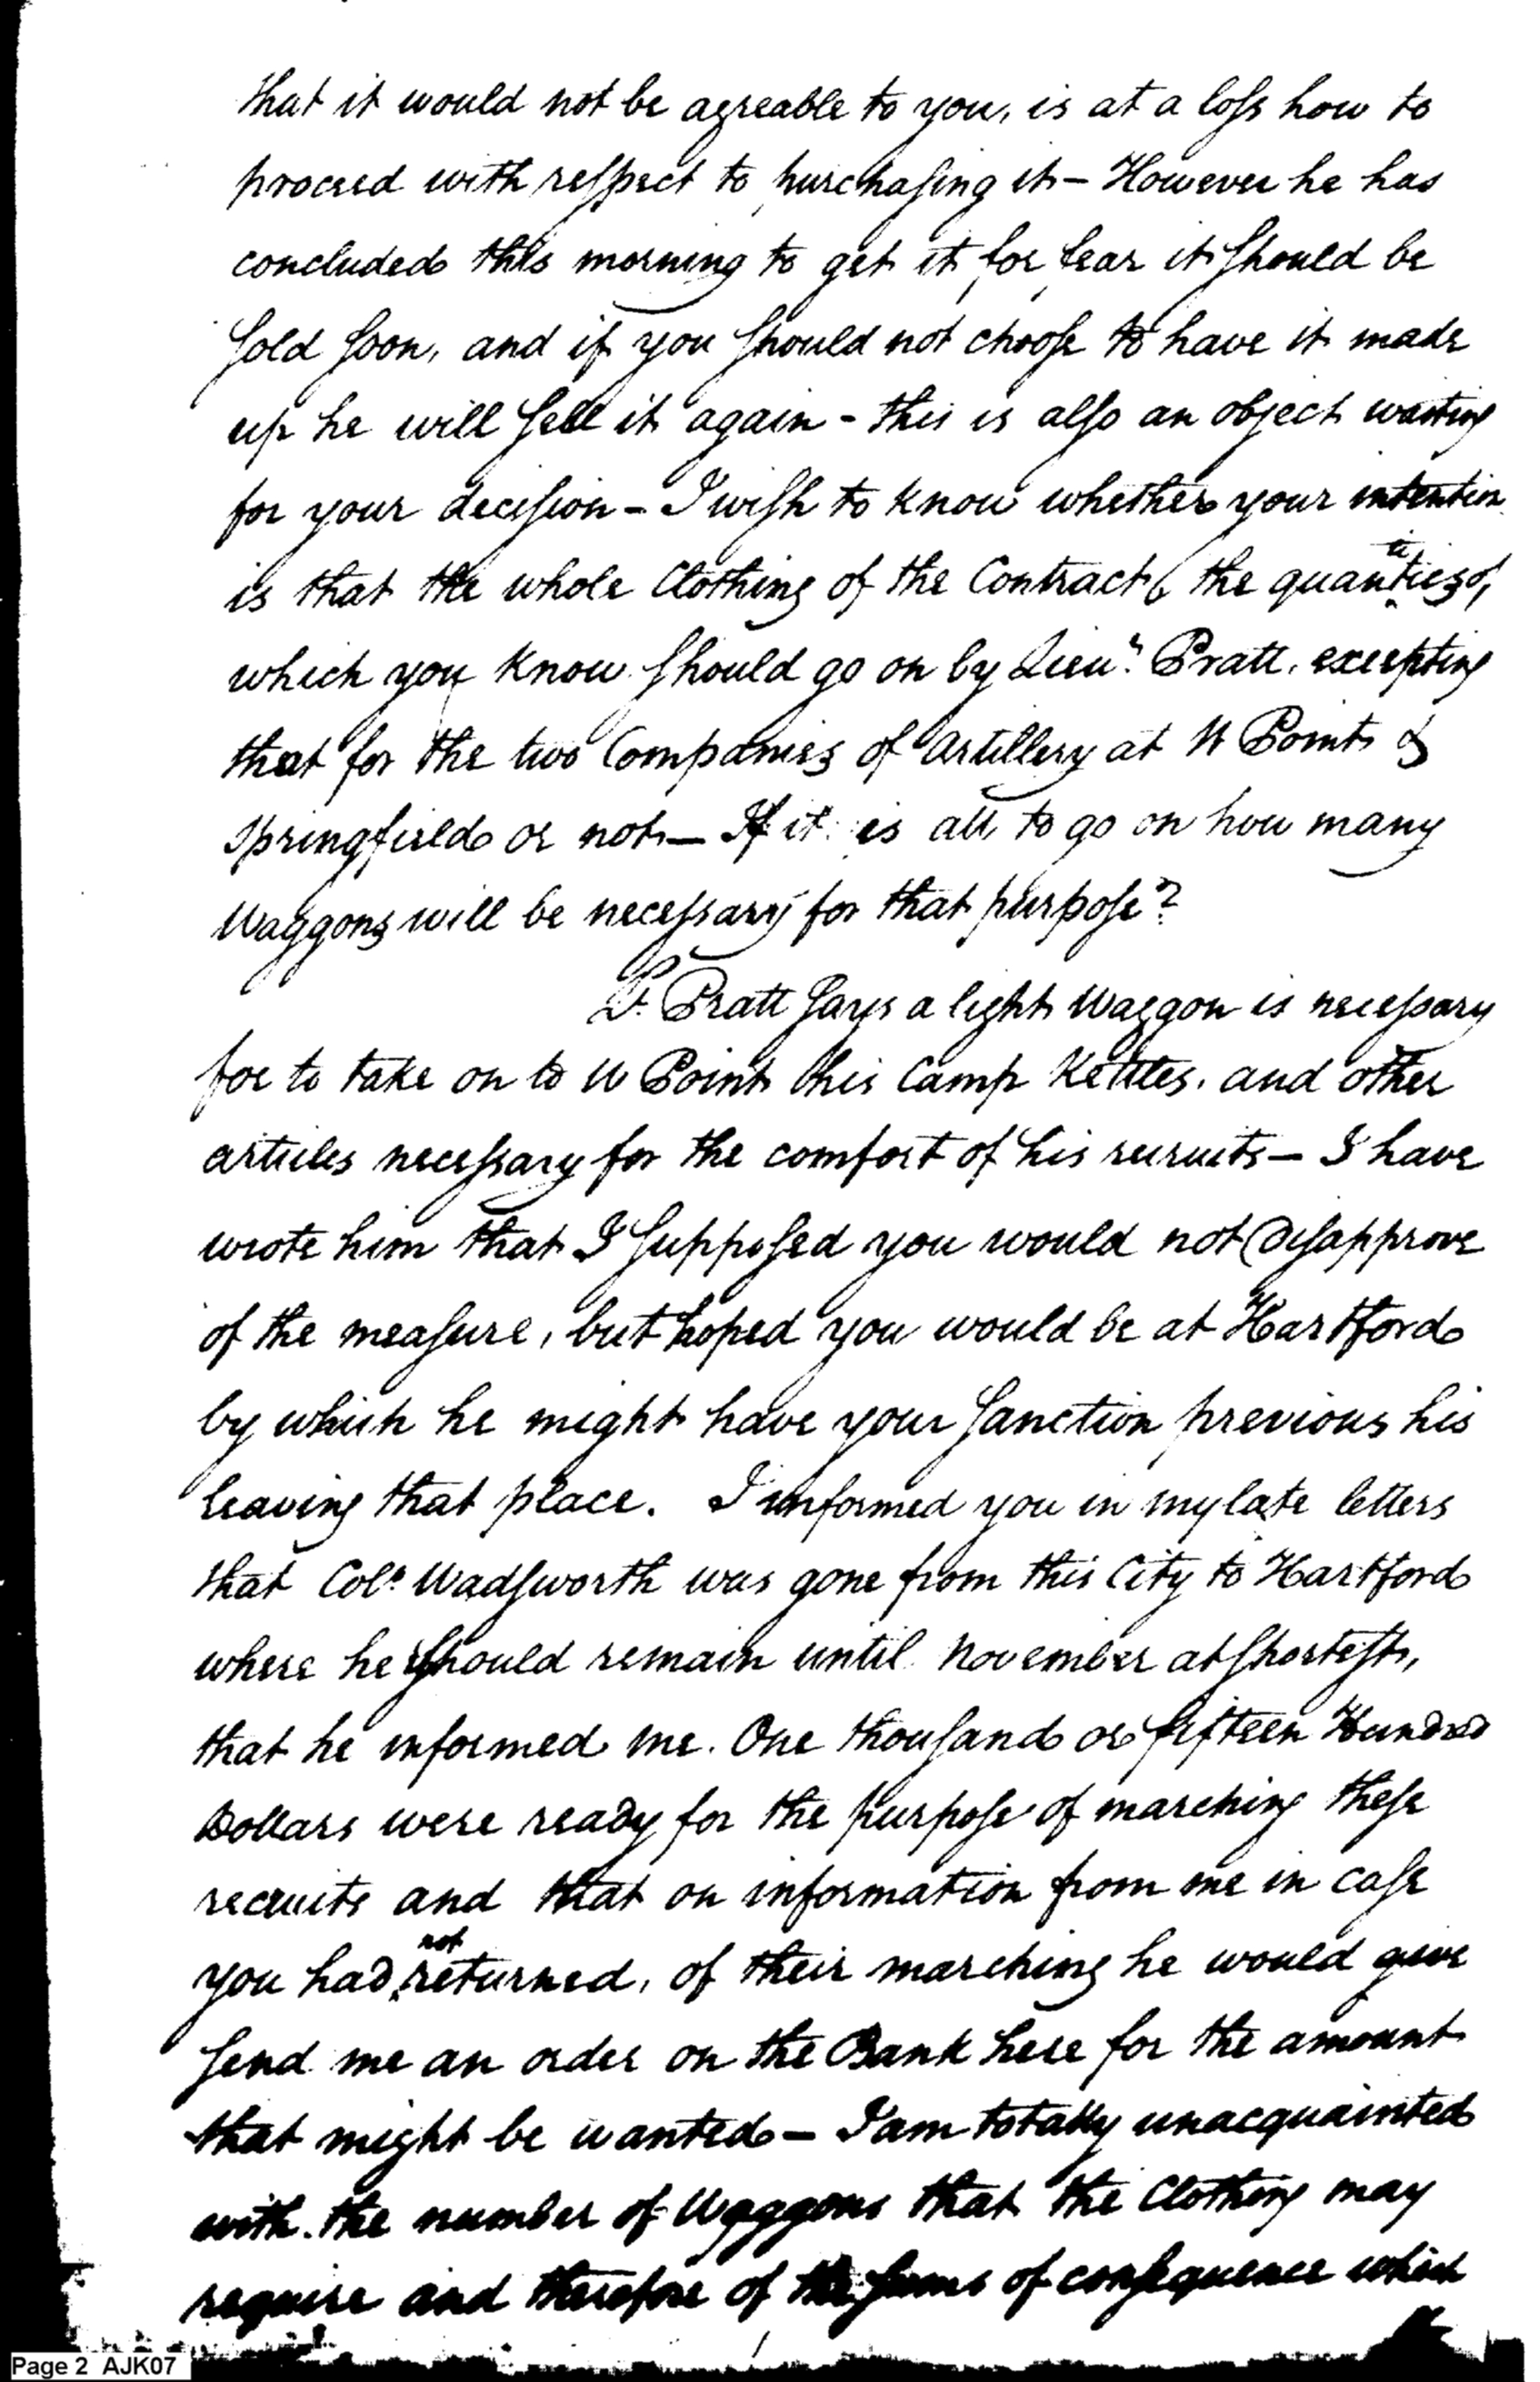 that it would not be agreable to you, is at a loſs how to
proceed with reſpect to purchaſing it – However he has
concluded this morning to get it for fear it ſhould be
ſold ſoon, and if you ſhould not chooſe to have it made
up he will ſell it again – this is alſo an object waiting
for your deciſion – I wiſh to know whether your intention
is that the whole Clothing of the Contract, the quantities of,
which you know ſhould go on by Lieut. Pratt, excepting
that for the two Companies of Artillery at W Point &
Springfield or not – If it is all to go on how many
Waggons will be neceſsary for that purpoſe?
Lt. Pratt ſays a light Waggon is neceſsary
for to take on to W Point his Camp Kettles, and other
articles neceſsary for the comfort of his recruits – I have
wrote him that I ſuppoſed you would not Diſapprove
of the meaſure, but hoped you would be at Hartford
by which he might have your ſanction previous his
leaving that place. I informed you in my late letters
that Colo. Wadſworth was gone from this City to Hartford
where he ſhould remain until November at ſhorteſt,
that he informed me. One thouſand or fifteen Hundred
Dollars were ready for the purpoſe of marching theſe
recruits and that on information from me in caſe
you had not returned, of their marching he would give
ſend me an order on the Bank here for the amount
that might be wanted – I am totally unacquainted
with the number of Waggons that the Clothing may
require and therefore of the ſums of conſequence which
Page 2 AJK07